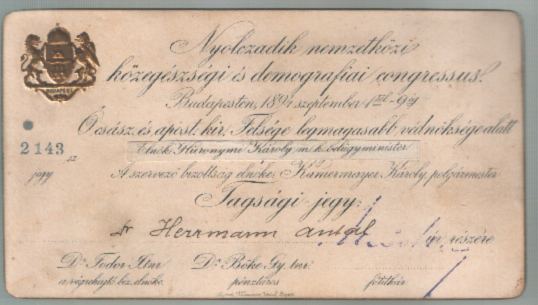 BUDAPEST
Nyolczadik nemzetközi
közegészségi és demografiai congressus.
Budapesten, 1894 szeptember 1től-9ig
Ő császi. és apost. kir. Felsége legmagasabb védnöksége alatt
2143 sz
Elnök: Hieronymi Károly m. k. belügyminister
jegy
A szervező bizottság elnöke: Kamermayer Károly, polgármester
Tagsági-jegy:
dr Herrmann Antal
úr részére
Dr Fodor
Dr Böke Gy. tnr.
a végrehajtó biz. elnöke.
pénztáros
főtitkár